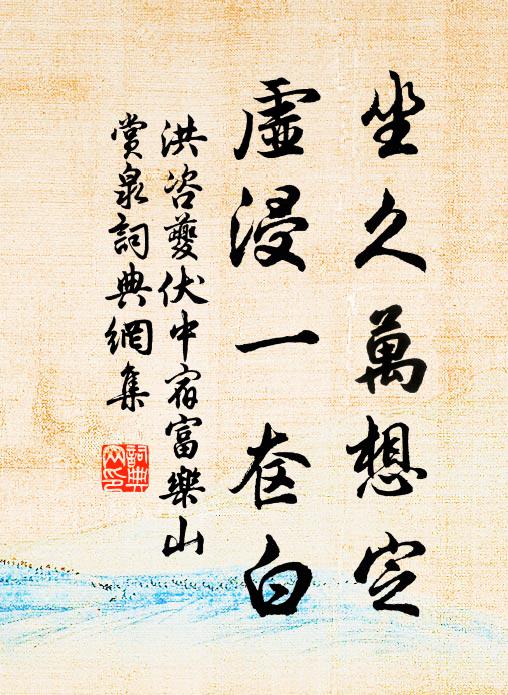 坐久萬想定
虛浸一奁白
洪咨夔伏中宿富樂山
賞泉詞典網集
詞典
网印